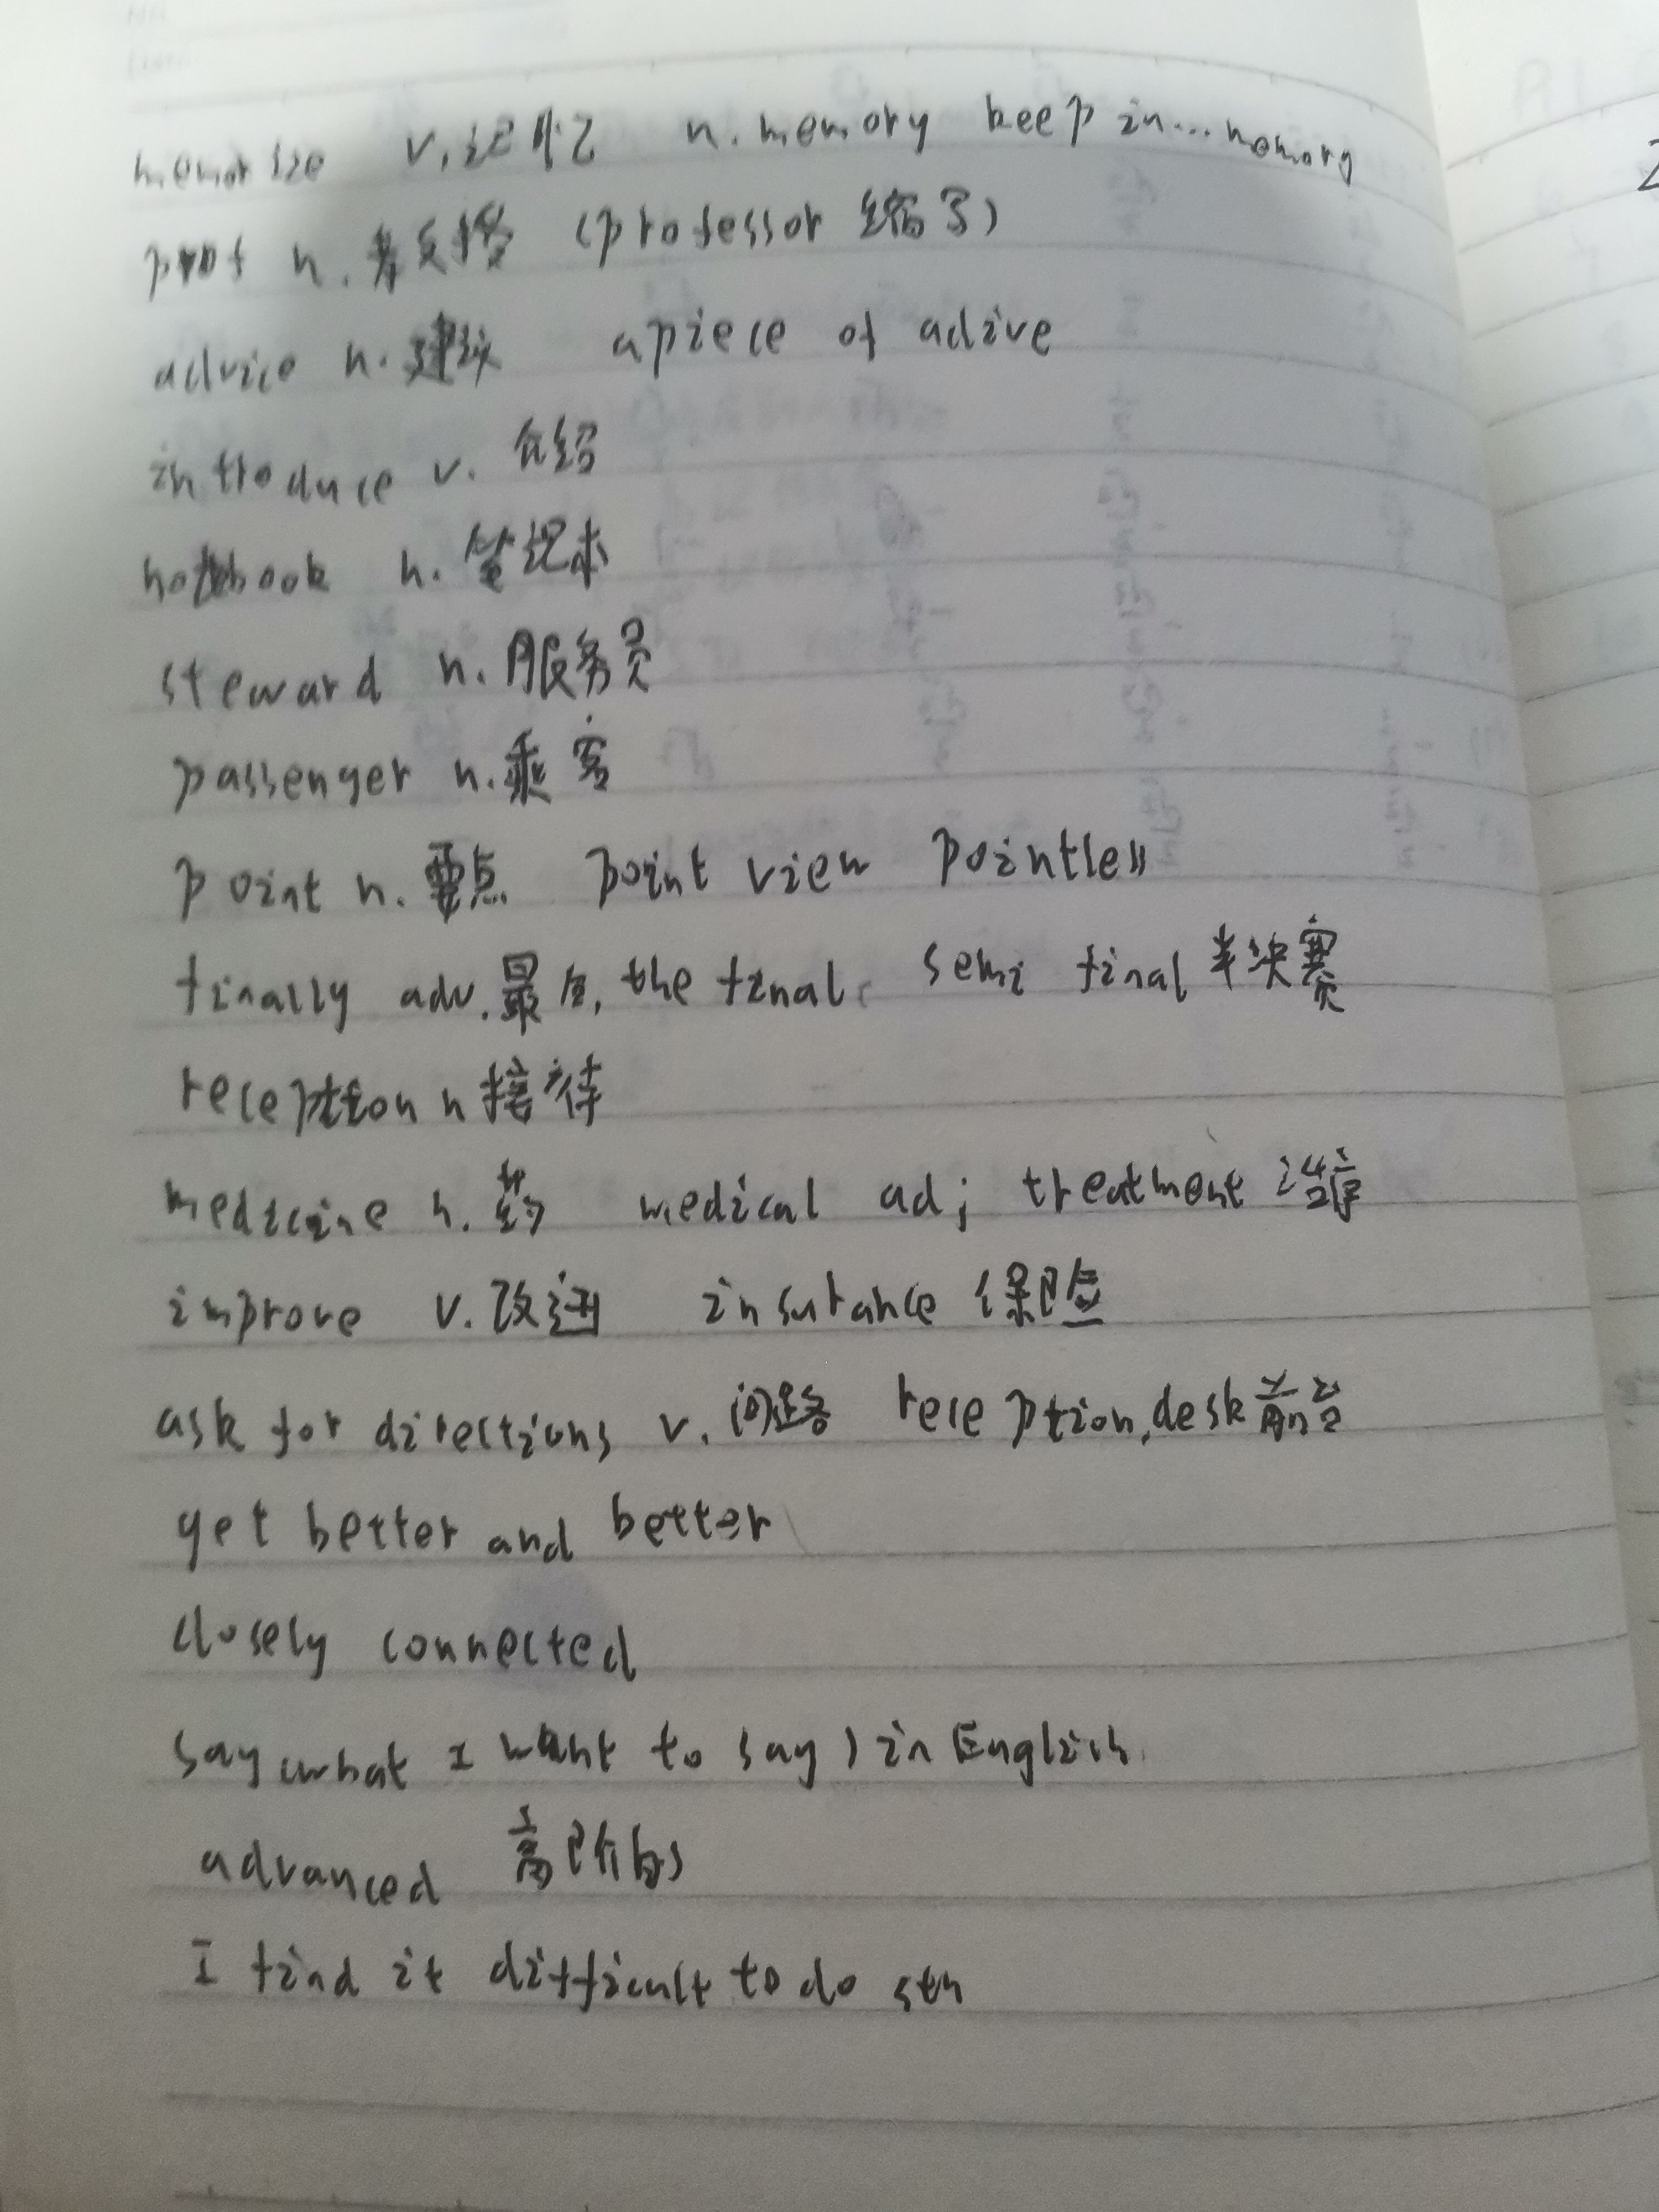 memorize v.记忆 n.memory keep in...memory
prof n.教授 (professor 缩写)
advice n.建议 a piece of adive
introduce v. 介绍
notebook n.笔记本
steward n.服务员
passenger n.乘客
point n.要点 point view pointless
finally adv.最后,the final. semi final 半决赛
reception n 接待
medicine n.药 medical adj treatment 治疗
improve v.改进 insurance 保险
ask for directions v.问路 reception,desk 前台
get better and better
closely connected
say (what I want to say) in English.
advanced 高阶的
I find it difficult to do sth